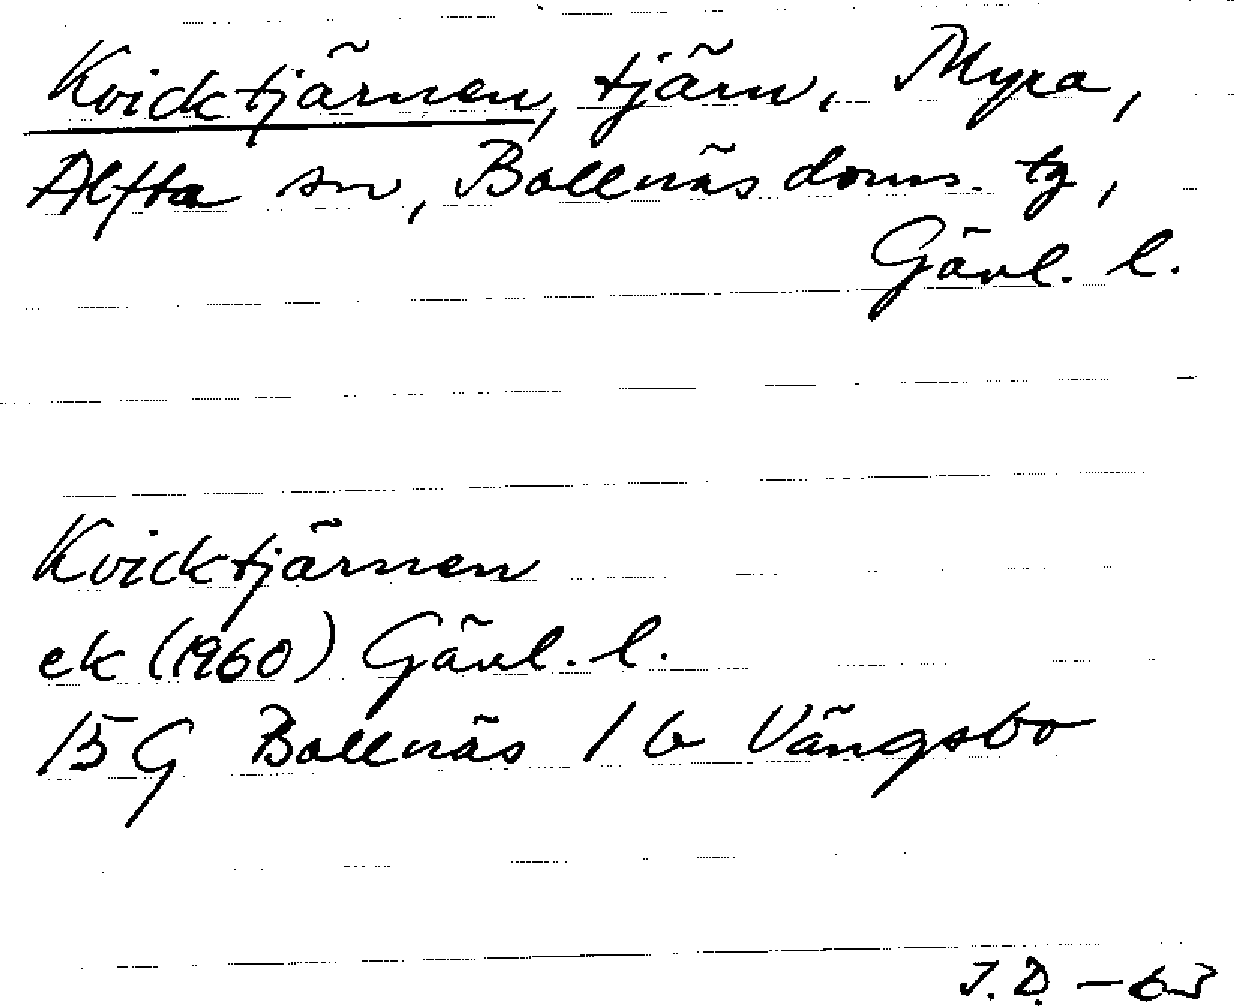 Kvicktjärnen, tjärn, Myra,
Alfta sn, Bollnäs doms. tg,
Gävl. l.
Kvicktjärnen
ek (1960) Gävl. l.
15 G Bollnäs 1 b Vängsbo
J.D. - 63